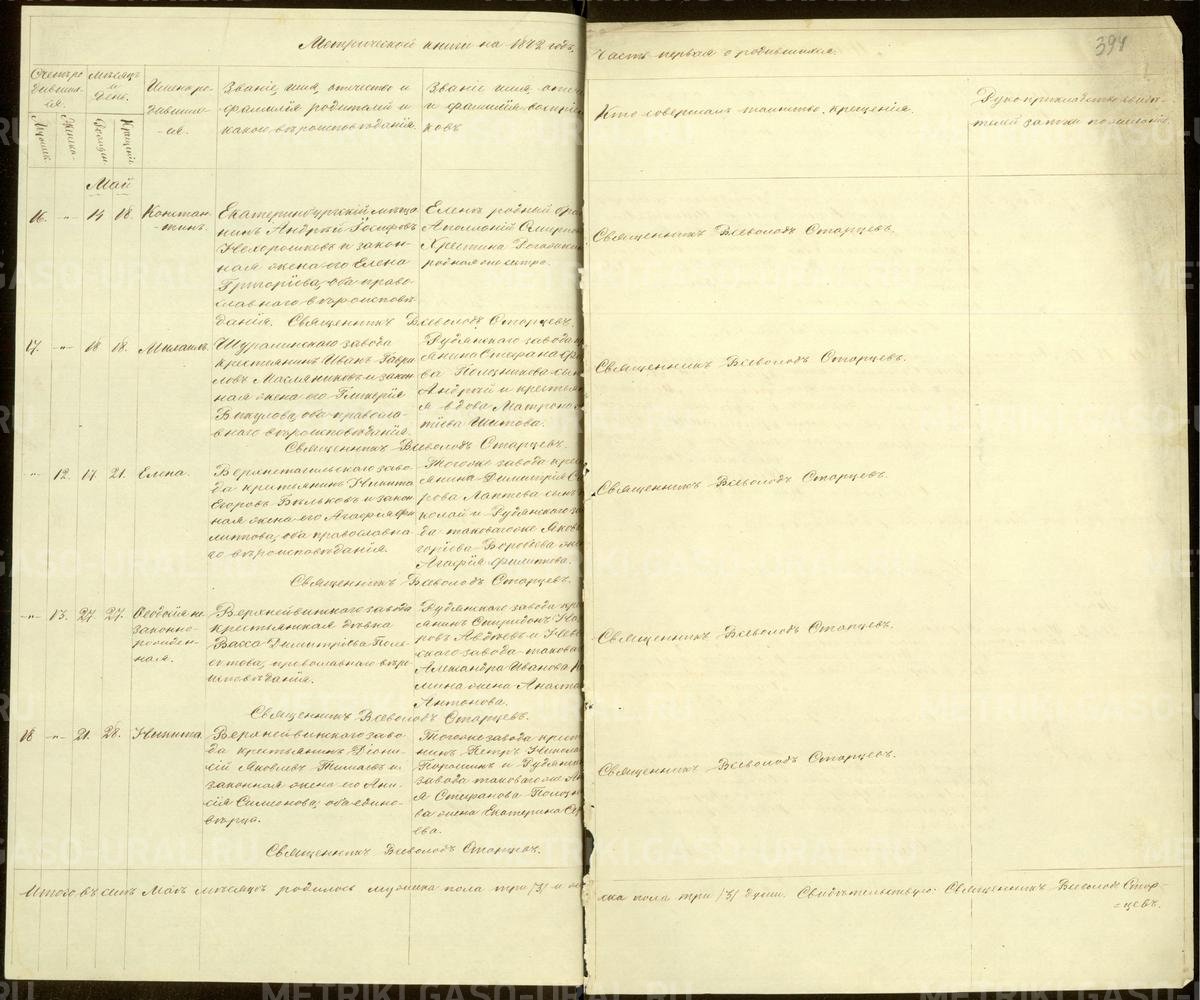 Метрической книги на 1872 годъ.
Часть первая о родившихся.
394
Счетъ родившихся.
Мѣсяцъ и День.
Имена родившихся.
Званіе, имя, отчество и
фамилія родителей и
какого вѣроисповѣданія.
Званіе, имя,
и фамилія
ковъ
Кто совершалъ таинство крещенія.
Рукоприкладство свидѣ-
телей записи
Мужеска. Женска. Рожден. Крещенія
Май
16. -"- 14 18. Констан-
-тинъ.
Екатеринбургскій мѣща
нинъ Андрей Іосифовъ
Нехорошковъ и закон-
ная жена его Елена
Григоріева, оба право-
славнаго вѣроисповѣ-
данія. Священникъ Всеволодъ Старцевъ.
Елены родный
Аполлоній
Христина
родная ея сестра.
Священникъ Всеволодъ Старцевъ.
17. -"- 18 18. Михаилъ.
Шуралинскаго завода
крестьянинъ Иванъ Гаври
ловъ Масляниковъ и закон
ная жена его Гликерія
Викулова, оба правосла-
внаго вѣроисповѣданія.
Священникъ Всеволодъ Старцевъ.
Рудянскаго завода
янина Стефана
ва
Андрей и крестья
я вдова Матрона
тіева
Священникъ Всеволодъ Старцевъ.
-"- 12. 17. 21. Елена.
Верхнетагильскаго заво-
да крестьянинъ Никита
Егоровъ Бѣльковъ и закон
ная жена его Агафія Фи
липпова, оба православна
го вѣроисповѣданія.
Священникъ Всеволодъ Старцевъ.
Тогоже завода крес
янина Димитрія
рова Лаптева сынъ
колай и Рудянскаго за
да таковагоже Якова
горіева Воробьева жена
Агафія Филиппова.
Священникъ Всеволодъ Старцевъ.
-"- 13. 27. 27. Ѳеодосія не
законно-
рожден-
ная.
Верхнейвинскаго завода
крестьянская дѣвка
Васса Димитріева
православнаго вѣро
исповѣданія.
Священникъ Всеволодъ Старцевъ.
Рудянскаго завода кре
янинъ Спиридонъ
ровъ Авдѣевъ и Невь
скаго завода такова
Александра Иванова
мина жена Анаста
Антонова.
Священникъ Всеволодъ Старцевъ.
18 -"- 21. 28. Никита.
Верхнейвинскаго заво-
да крестьянинъ Діони-
сій Яковлевъ и
законная жена его Ани-
сія Симионова, оба едино-
вѣрца.
Священникъ Всеволодъ Старцевъ.
Тогоже завода крест
нинъ Петръ Никола
Порошинъ и Рудянск
завода таковагоже
я Стефанова
ва жена Екатерина
ева.
Священникъ Всеволодъ Старцевъ.
Итого въ семъ Маѣ мѣсяцѣ родилось мужска пола три /3/ и же
ска пола три /3/ души. Свидѣтельствую: Священникъ Всеволодъ Стар-
=цевъ.
METRIKI.GASO-URAL.RU